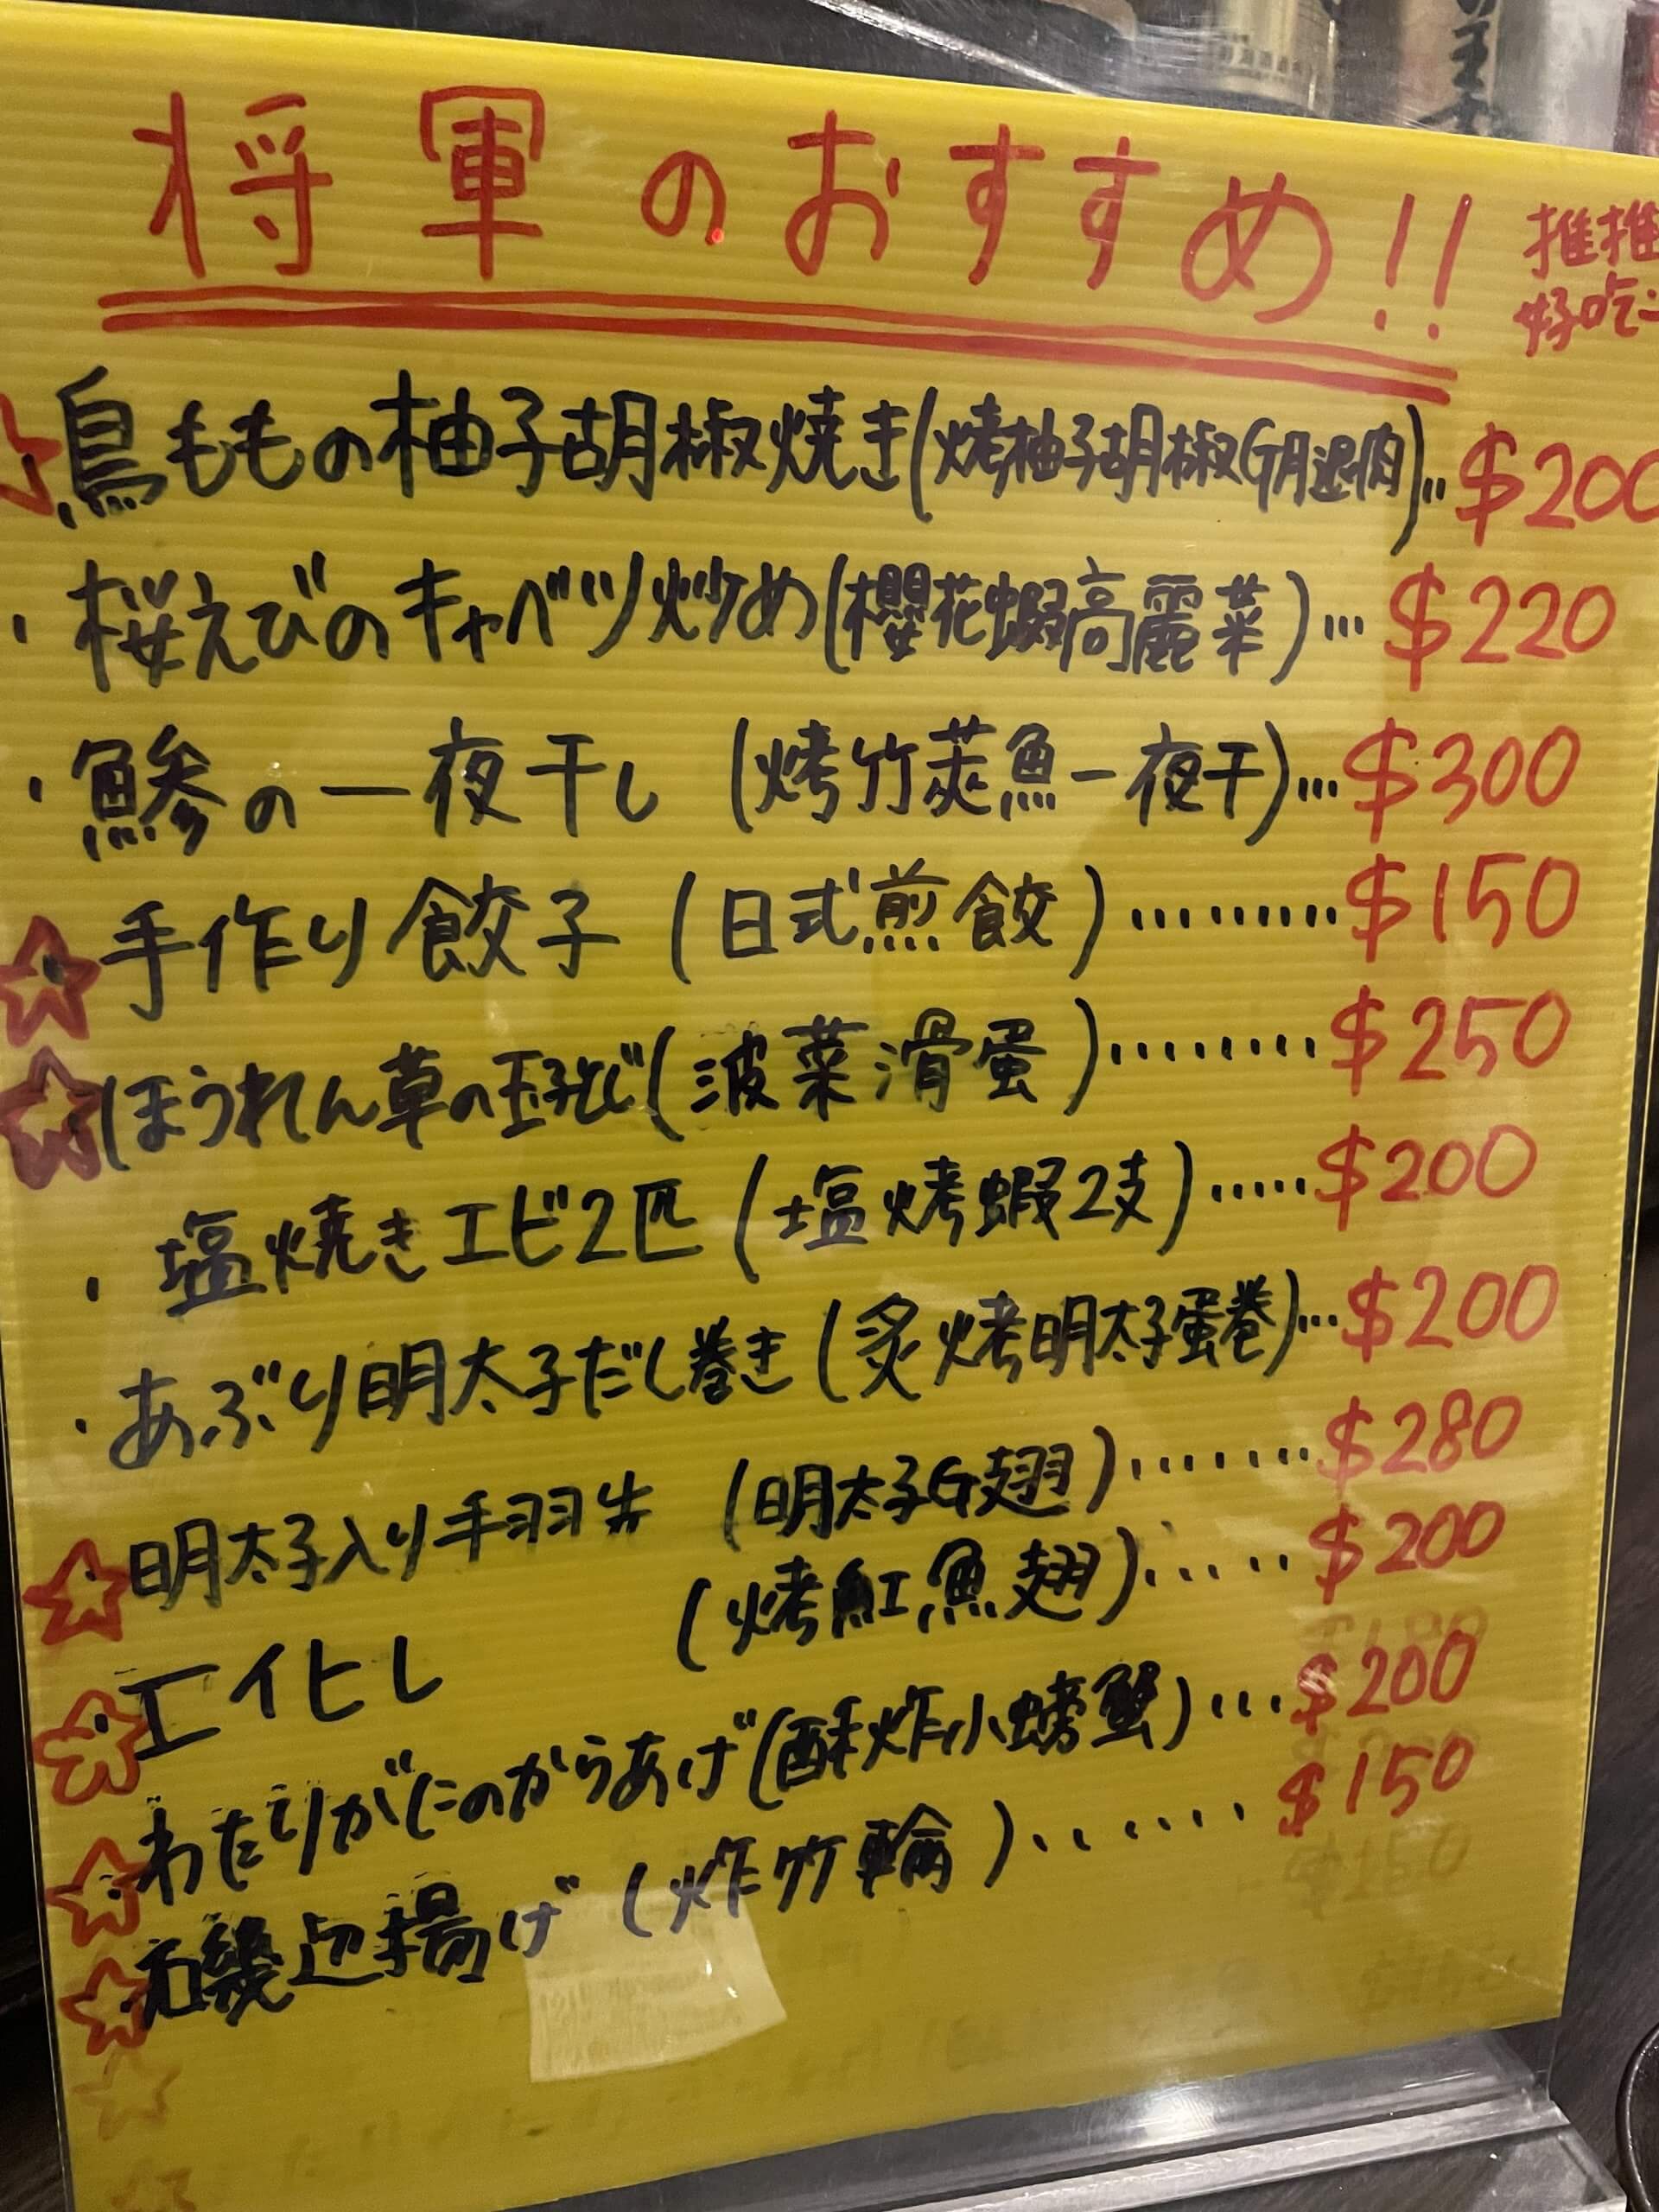 将軍のおすすめ!!
推推
好吃
鳥ももの柚子胡椒焼き(烤柚子胡椒G月退肉)‥$200
・桜えびのキャベツ炒め(櫻花蝦高麗菜)…$220
・鯵の一夜干し (烤竹莢魚一夜干)…$300
手作り餃子 (日式煎餃)………$150
ほうれん草の玉子とじ(波菜滑蛋)………$250
・塩焼きエビ2匹 (塩烤蝦2支)……$200
・あぶり明太子だし巻き (炙烤明太子蛋巻)…$200
明太子入り手羽先 (明太子G翅)………$280
エイヒレ (烤魟魚翅)……$200
わたりがにのからあげ (酥炸小螃蟹)…$200
揚げ (炸竹輪)………$150